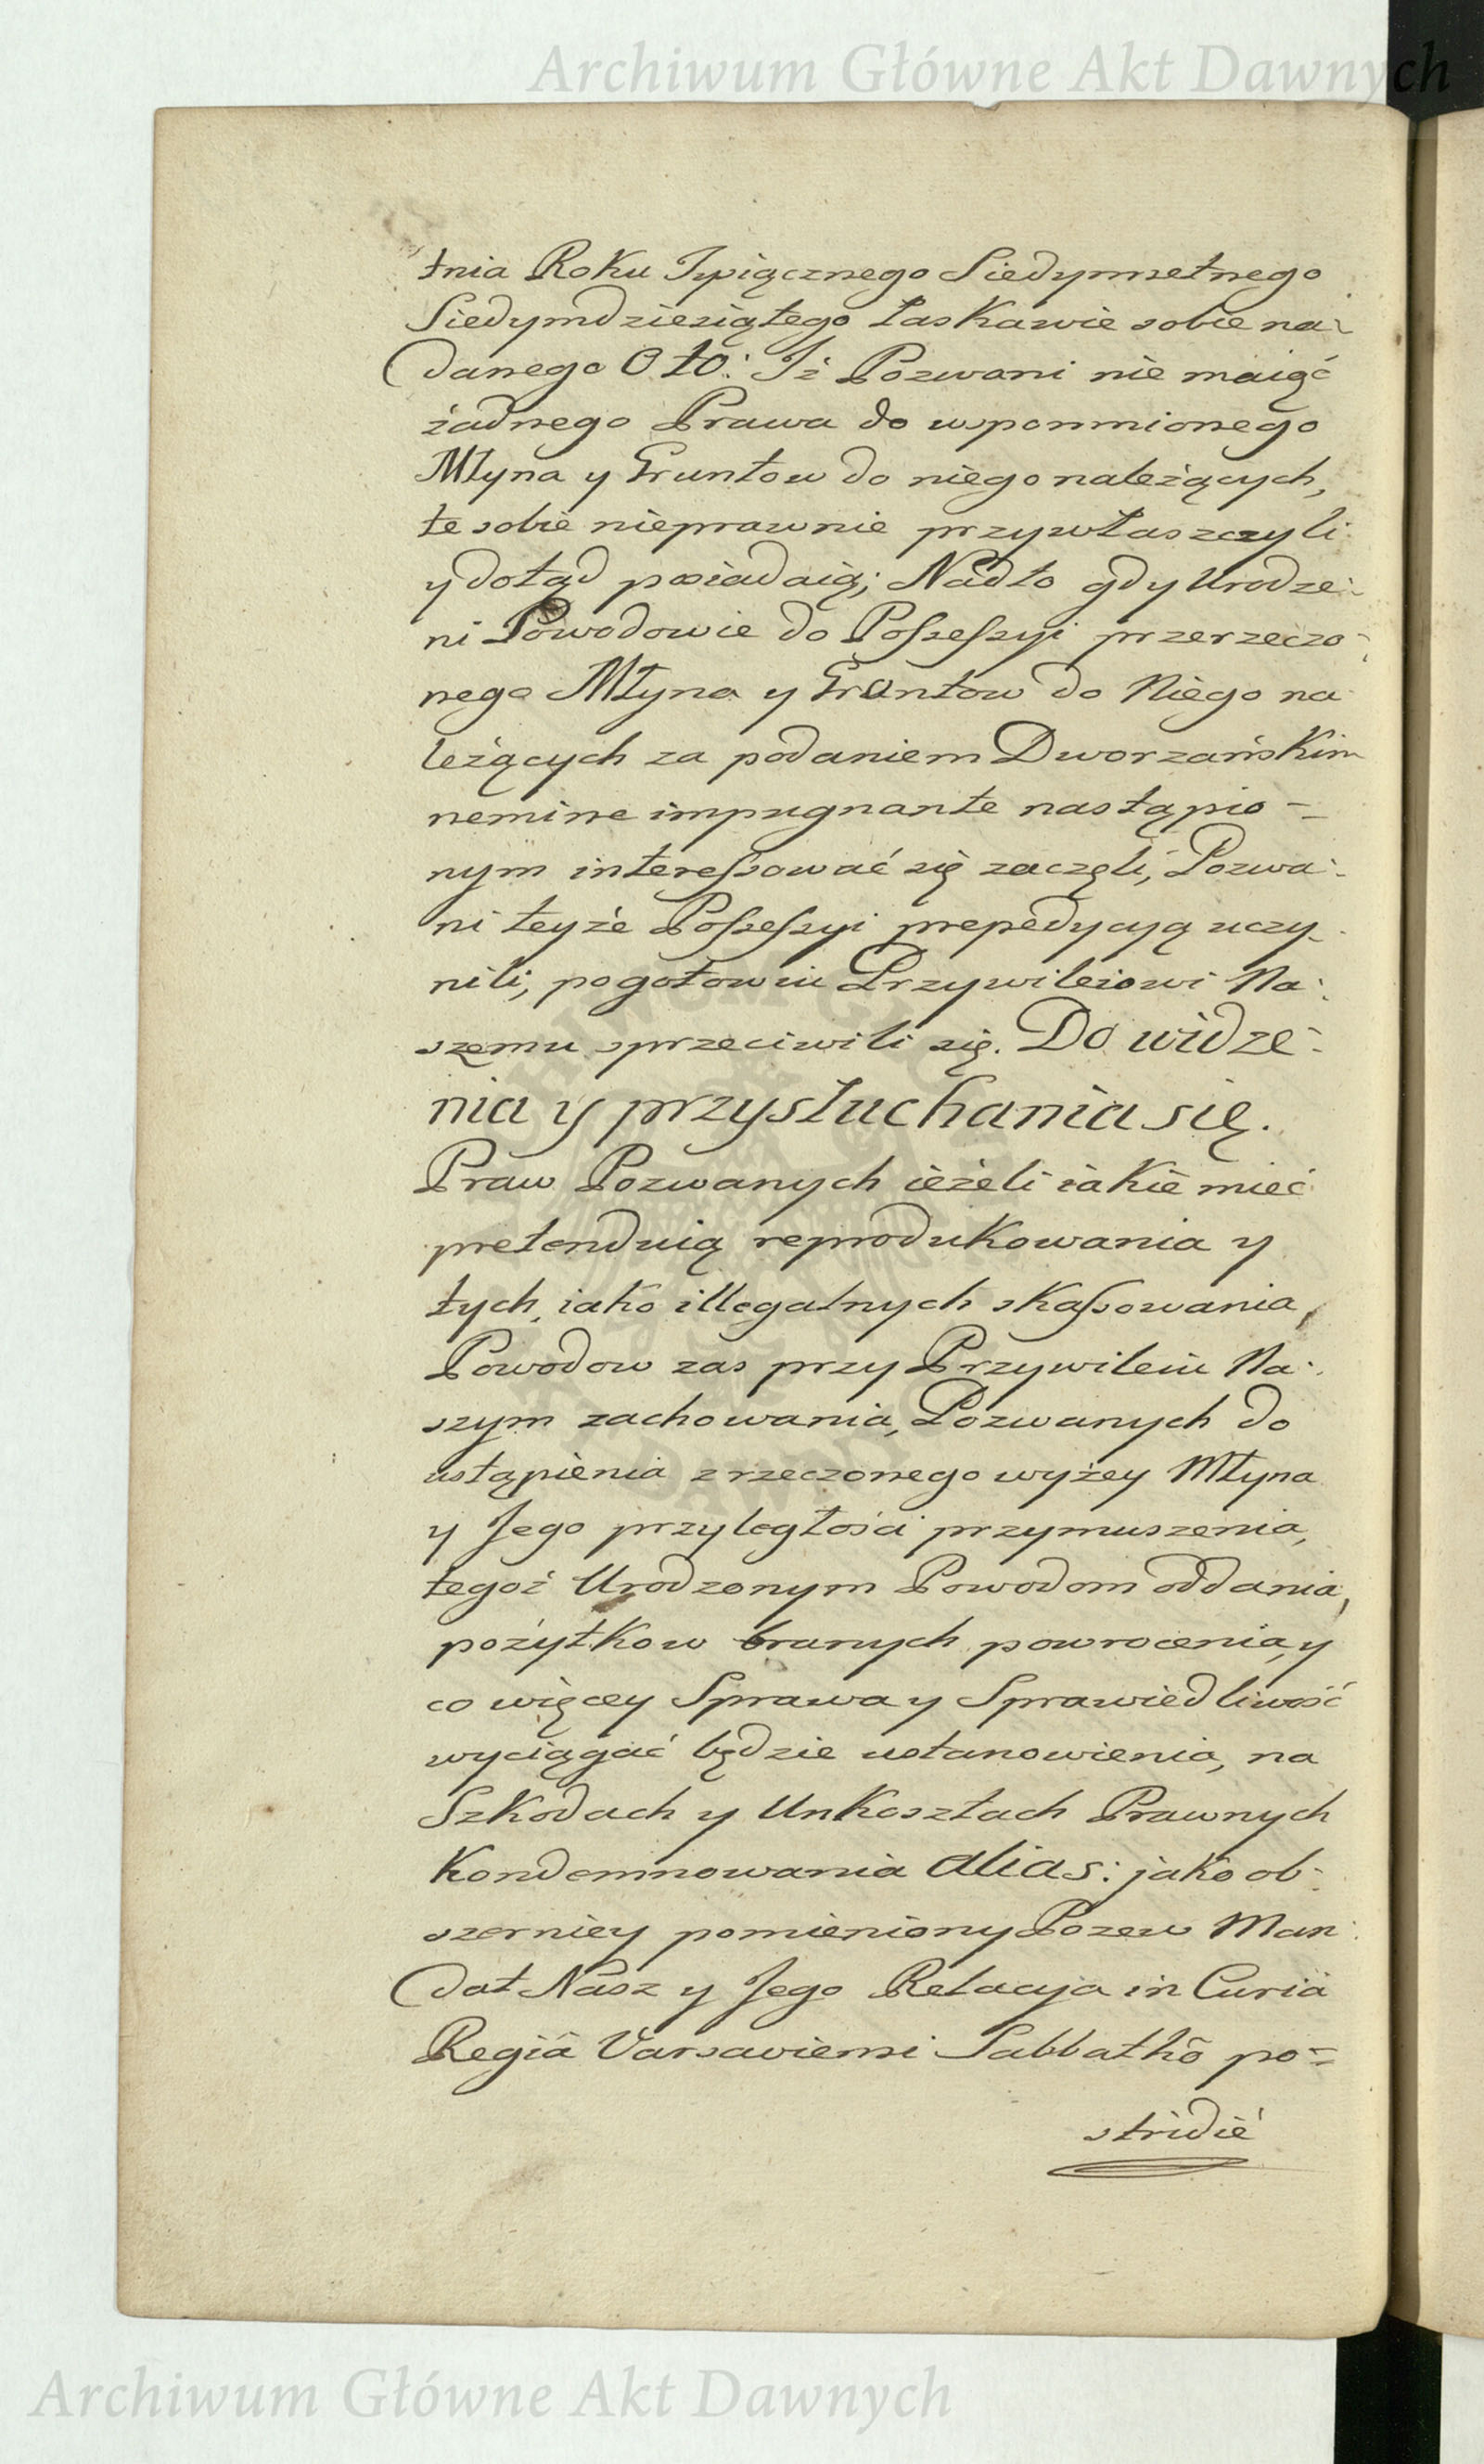 Archiwum Główne Akt Dawnych
tnia Roku Tysiącznego Siedymsetnego
Siedymdziesiątego łaskawie sobie na-
danego O to: Iż Pozwani nie maiąć
żadnego Prawa do wspomnionego
Młyna y Gruntow do niego należących,
te sobie nieprawnie przywłaszczyli
y dotąd posiadaią; Nadto gdy Urodze-
ni Powodowie do Possessyi przerzeczo-
nego Młyna y Gruntow do Niego na
leżących za podaniem Dworzańskim
nemine impugnante nastąpio-
nym interessować się zaczęli, Pozwa-
ni teyże Possessyi prepedycyą uczy-
nili, pogotowiu Przywileiowi Na-
szemu sprzeciwili się. Do widze-
nia y przysłuchania się.
Praw Pozwanych ieżeli iakie mieć
pretenduią reprodukowania y
tych, iako illegalnych skassowania,
Powodow zas przy Przywileiu Na-
szym zachowania, Pozwanych do
ustąpienia z rzeczonego wyżey Młyna
y Jego przyległości przymuszenia,
tegoż Urodzonym Powodom oddania,
pożytkow branych powrocenia, y
co więcey Sprawa y Sprawiedliwość
wyciągać będzie ustanowienia, na
Szkodach y Unkosztach Prawnych
Kondemnowania alias: jako ob-
szerniey pomieniony Pozew Man-
dat Nasz y Jego Relacya in Curiâ
Regiâ Varsaviensi Sabbathô po-
stridié
Archiwum Główne Akt Dawnych